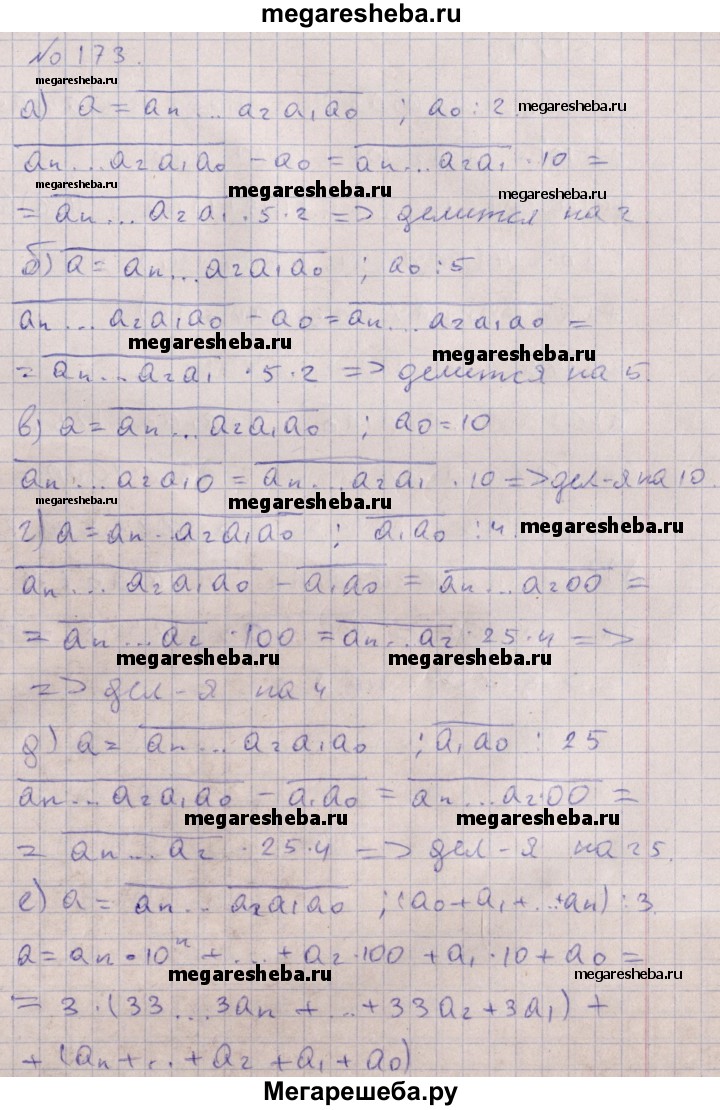 megaresheba.ru
№ 173.
megaresheba.ru
а) a = aₙ...a₂a₁a₀ ; a₀ : 2. megaresheba.ru
aₙ...a₂a₁a₀ - a₀ = aₙ...a₂a₁ · 10 =
megaresheba.ru megaresheba.ru megaresheba.ru
= aₙ...a₂a₁ · 5 · 2 => делится на 2.
б) a = aₙ...a₂a₁a₀ ; a₀ : 5
aₙ...a₂a₁a₀ - a₀ = aₙ...a₂a₁a₀ =
megaresheba.ru megaresheba.ru
= aₙ...a₂a₁ · 5 · 2 => делится на 5.
в) a = aₙ...a₂a₁a₀ ; a₀ = 10
aₙ...a₂a₁0 = aₙ...a₂a₁ · 10 => дел-я на 10.
megaresheba.ru megaresheba.ru megaresheba.ru
г) a = aₙ...a₂a₁a₀ ; a₁a₀ : 4. megaresheba.ru
aₙ...a₂a₁a₀ - a₁a₀ = aₙ...a₂00 =
= aₙ...a₂ · 100 = aₙ...a₂ · 25 · 4 =>
megaresheba.ru megaresheba.ru
=> дел-я на 4
д) a = aₙ...a₂a₁a₀ ; a₁a₀ : 25
aₙ...a₂a₁a₀ - a₁a₀ = aₙ...a₂00 =
megaresheba.ru megaresheba.ru
= aₙ...a₂ · 25 · 4 => дел-я на 25.
е) a = aₙ...a₂a₁a₀ ; (a₀ + a₁ + ... + aₙ) : 3.
a = aₙ · 10ⁿ + ... + a₂ · 100 + a₁ · 10 + a₀ =
megaresheba.ru megaresheba.ru
= 3 · (33...3aₙ + ... + 33a₂ + 3a₁) +
+ (aₙ + ... + a₂ + a₁ + a₀)
Мегарешеба.ру